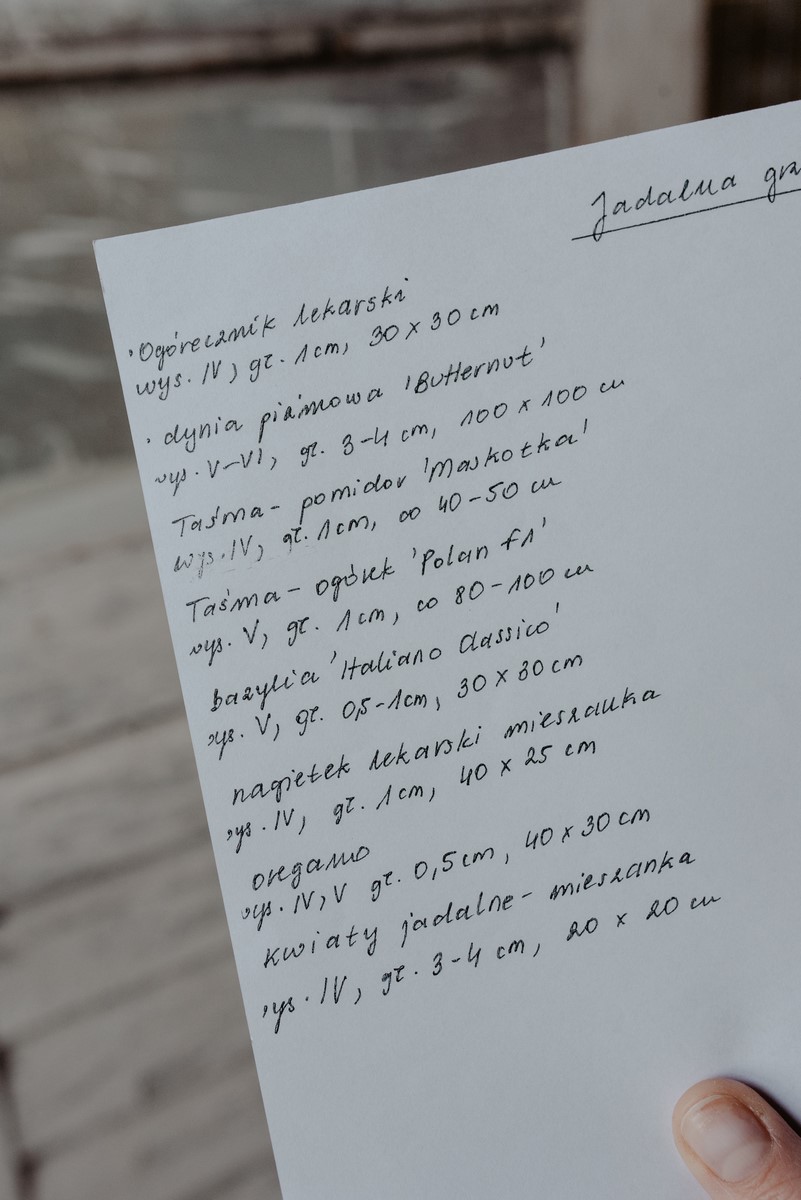 Jadalna
• Ogórecznik lekarski
wys. IV, gł. 1cm, 30 x 30 cm
• dynia piżmowa 'Butternut'
wys. V-VI, gł. 3-4 cm, 100 x 100 cm
Taśma - pomidor 'Maskotka'
wys. IV, gł. 1cm, co 40-50 cm
Taśma - ogórek 'Polan F1'
wys. V, gł. 1cm, co 80-100 cm
bazylia 'Italiano Classico'
wys. V, gł. 0,5-1cm, 30 x 30 cm
nagietek lekarski mieszanka
wys. IV, gł. 1cm, 40 x 25 cm
oregano
wys. IV, V gł. 0,5cm, 40 x 30 cm
kwiaty jadalne - mieszanka
wys. IV, gł. 3-4 cm, 20 x 20 cm